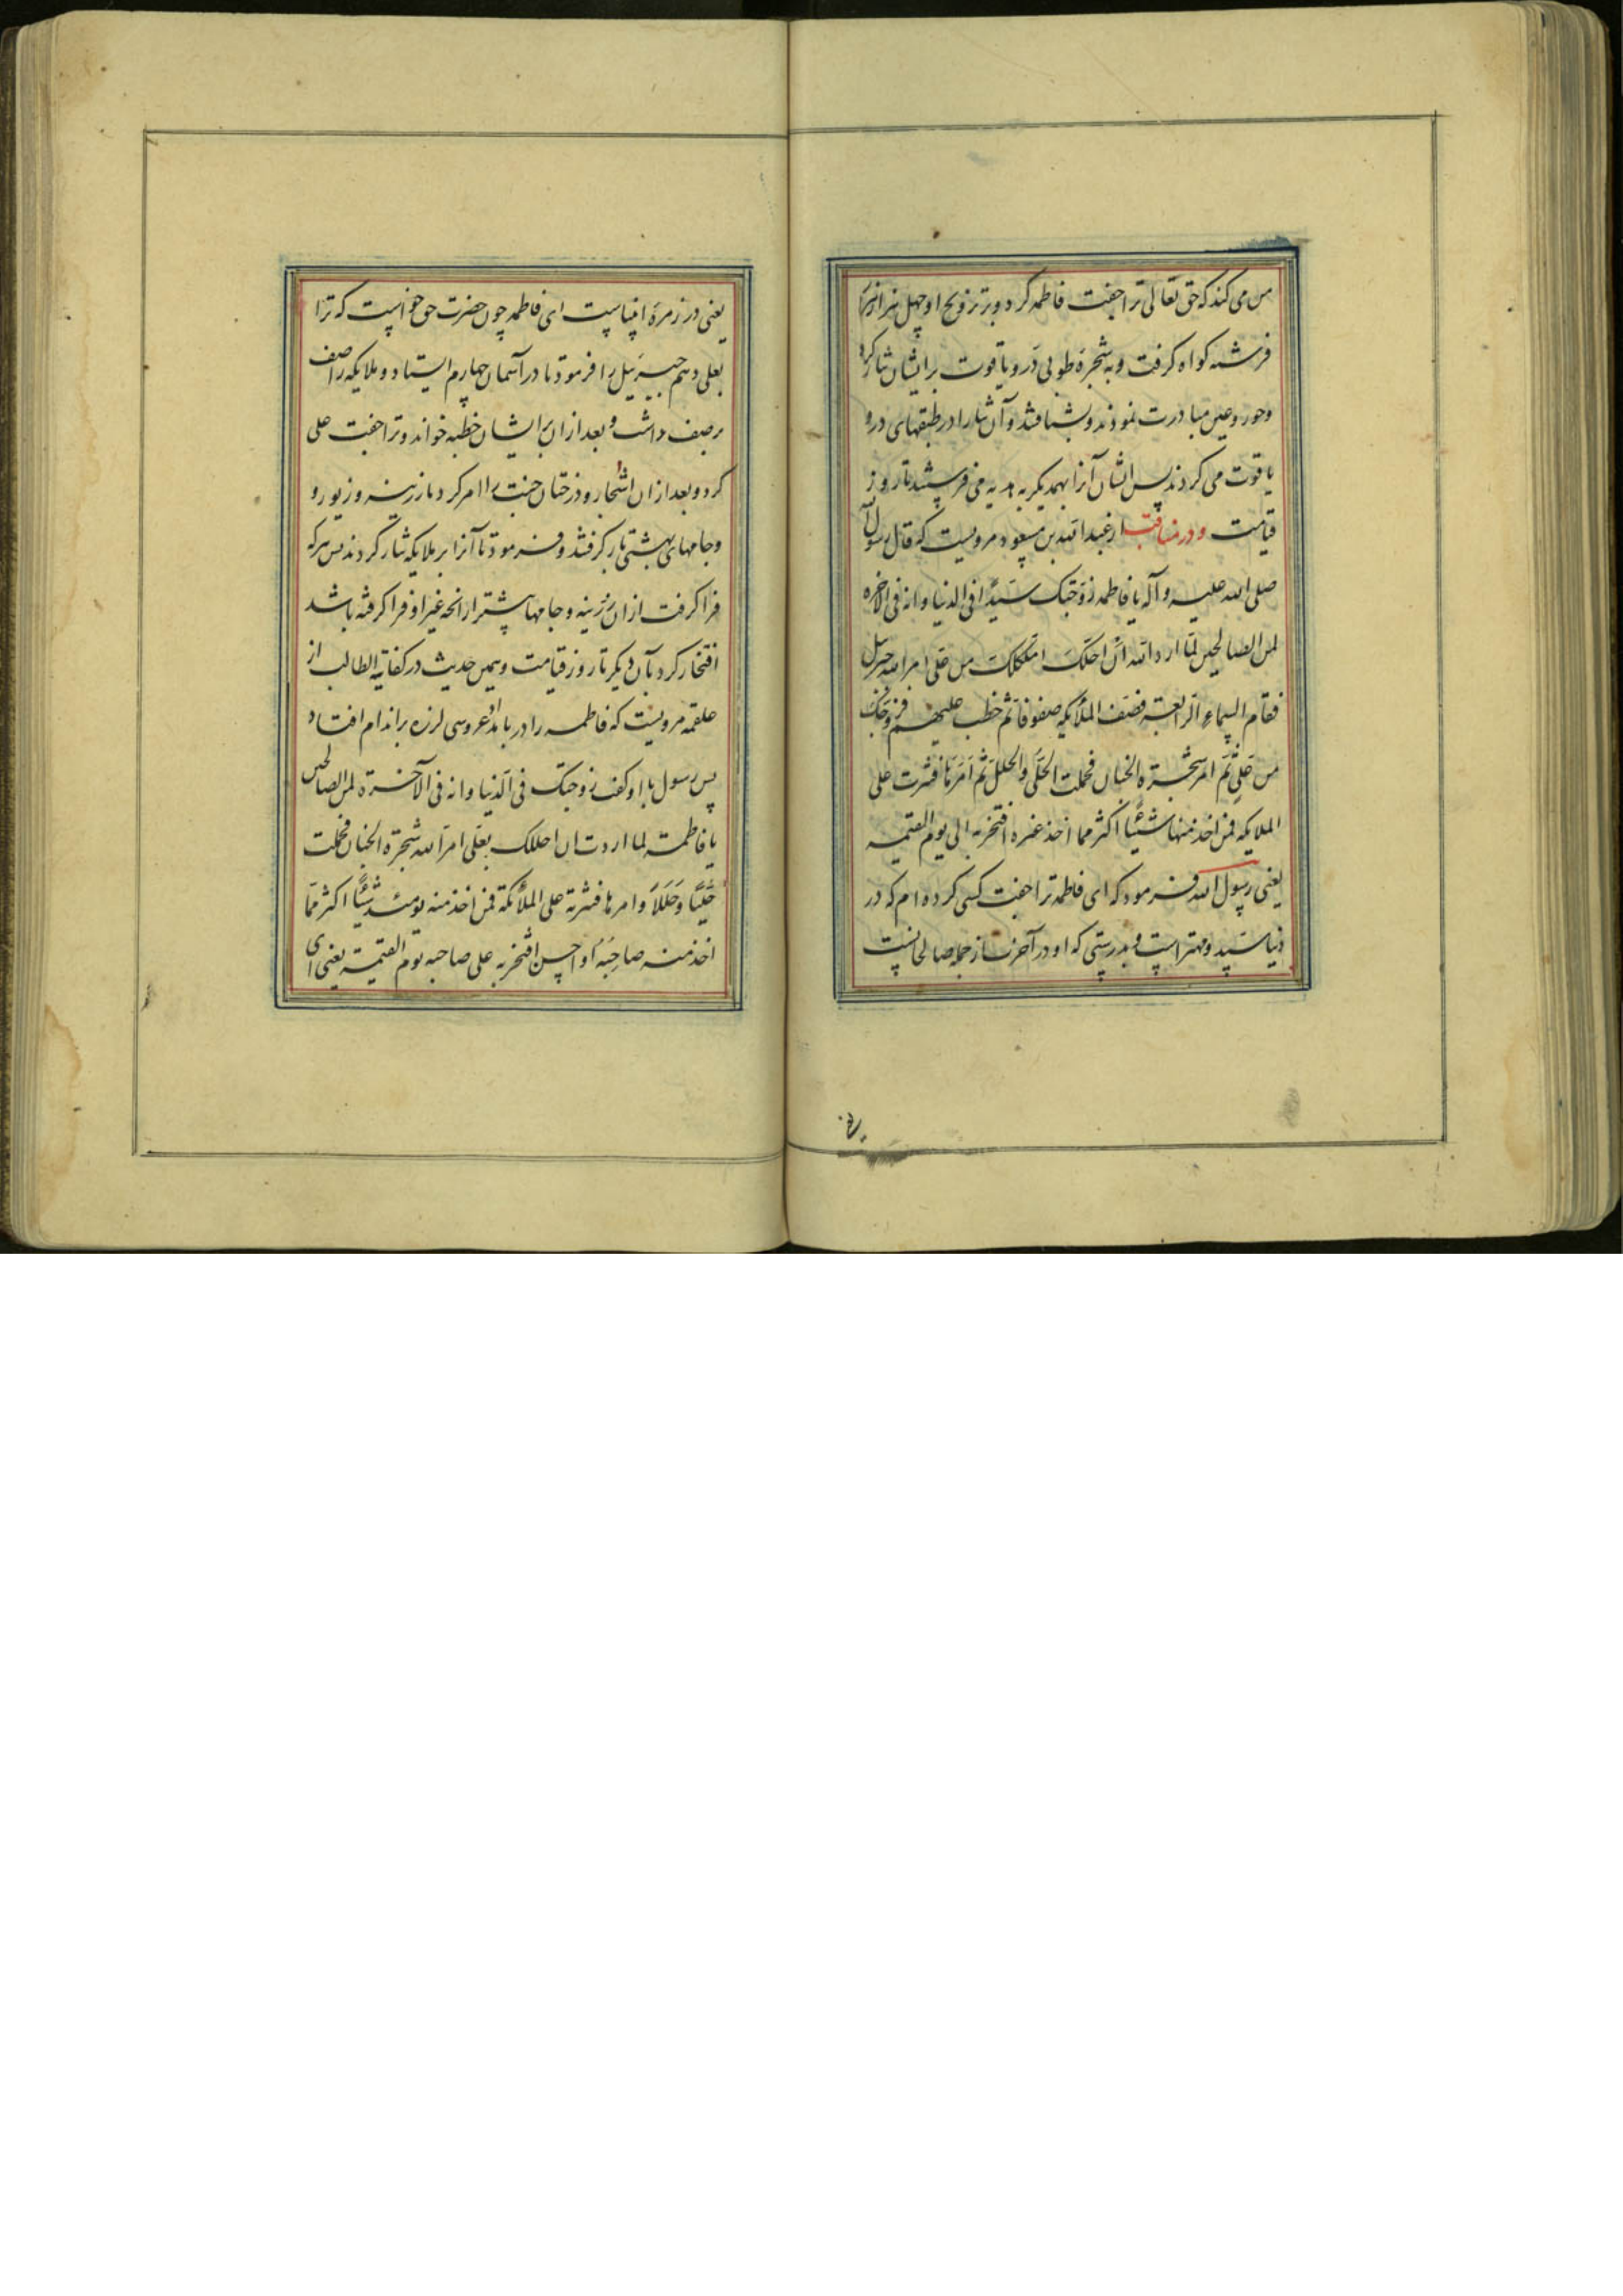 من می کند که حق تعالی ترا جفت فاطمه کرد و بر تزویج او چهل هزار
فرشته کواه کرفت و به شجرهٔ طوبی در و یاقوت بر ایشان نثار کرد
و حور و عین مبادرت نمودند و بشتافتند و آن نثار را در طبقهای در و
یاقوت می کردند پس ایشان آنرا بهمدیکر به هدیه می فرستند تا روز
قیامت و در مناقب از عبدالله بن مسعود مرویست که قال رسول الله
صلی الله علیه و آله یا فاطمه زوجتک سیدا فی الدنیا و انه فی الاخره
لمن الصالحین لما اراد الله ان املکک من علی امر الله جبرئیل
فقام السماء الرابعة فصف الملائکه صفوفا ثم خطب علیهم فزوجک
من علی ثم امر شجرة الجنان فحملت الحلی و الحلل ثم امرها فنثرت علی
الملایکه فمن اخذ منها شیئا اکثر مما اخذ غیره افتخر به الی یوم القیمه
یعنی رسول الله فرمود که ای فاطمه ترا جفت کسی کرده ام که در
دنیا سید و مهتر است و بدرستی که او در آخرت از جمله صالحانست
یعنی در زمرهٔ انبیاست ای فاطمه چون حضرت حق خواست که ترا
بعلی دهم جبرئیل را فرمود تا در آسمان چهارم ایستاد و ملایکه را صف
بر صف داشت و بعد از ان بر ایشان خطبه خواند و ترا جفت علی
کرد و بعد از ان اشجار و درختان جنت را امر کرد تا زرینه و زیور و
و جامهای بهشتی بار کرفتند و فرمود تا آنرا بر ملایکه نثار کردند پس هر که
فرا کرفت از ان زرینه و جامها بیشتر از انچه غیر او فرا کرفته باشد
افتخار کرد بآن دیکر تا روز قیامت و همین حدیث در کفایة الطالب از
علقمه مرویست که فاطمه را در بامداد عروسی لرزه بر اندام افتاد
پس رسول با او کفت زوجتک فی الدنیا و انه فی الآخرة لمن الصالحین
یا فاطمة لما اردت ان املکک بعلی امر الله شجرة الجنان فحملت
حلیا و حللا و امرها فنثرته علی الملائکة فمن اخذ منه یومئذ شیئا اکثر مما
اخذ منه صاحبه او احسن افتخر به علی صاحبه یوم القیمة یعنی ای